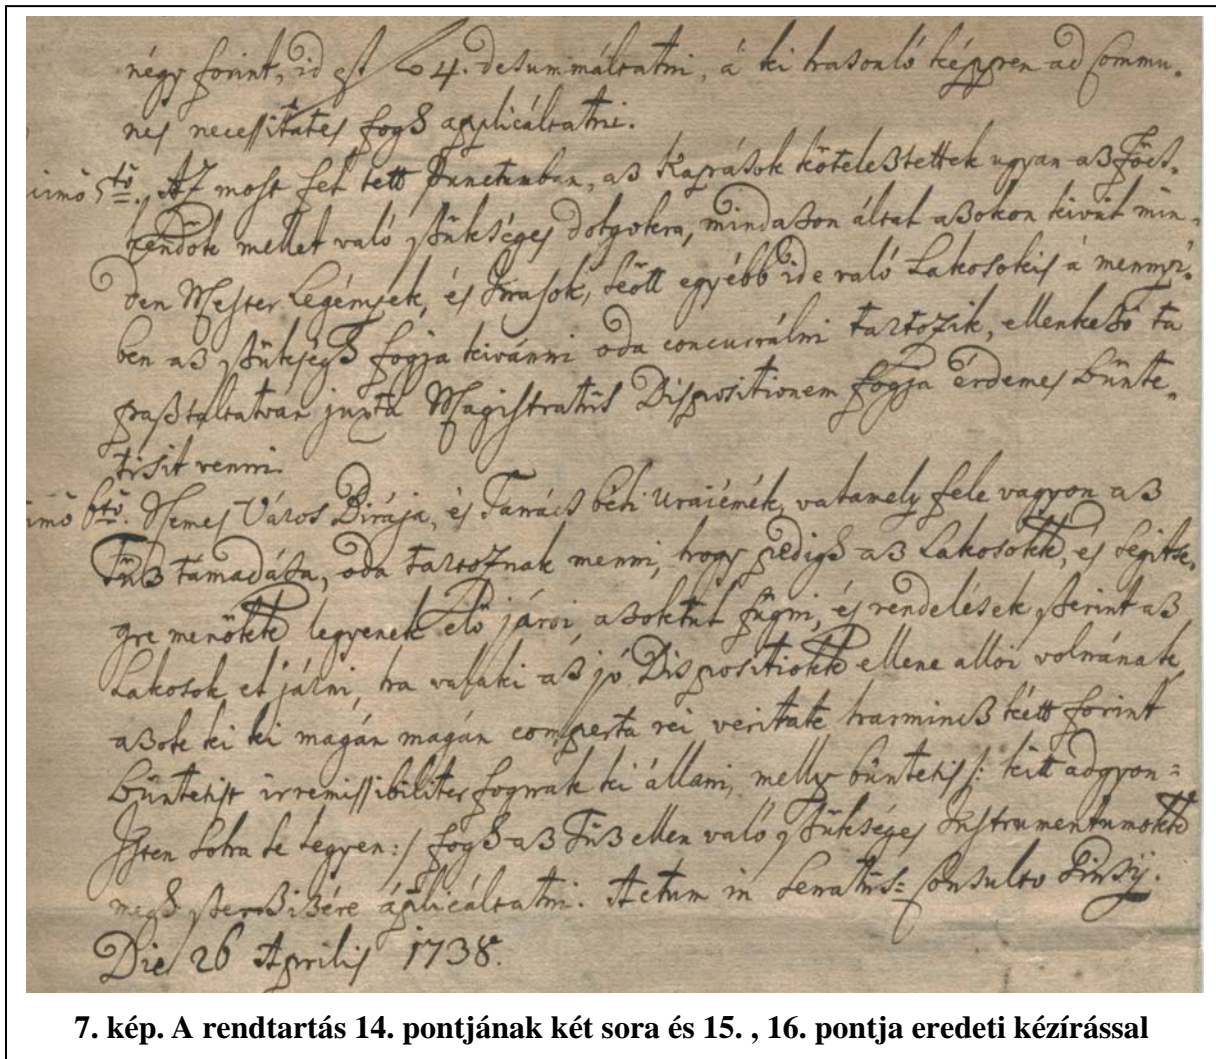 négy forint, id est f 4. desummáltatni, á ki hasonló képpen ad Commu,
nes necessitates fogh applicáltatni.
cimo 5tō., Az most fel tett Punctumban, az Kapások köteleztettek ugyan az Föcs,
kendök mellet való szükséges dolgokra, mindazon által azokon kivűl min,
den Mester Legények, és Inasok, sőtt egyébb ide való Lakosokis á mennyi,
ben az szükségh fogja kivánni oda concurrálni tartozik, ellenkező ta
pasztaltatván juxta Magistratûs Dispositionem fogja érdemes bünte,
tisit venni.
imō 6tō. Nemes Város Birája, és Tanács béli Uraiémék, valamely fele vagyon az
Tűz támadása, oda tartoznak menni, hogy pedigh az Lakosokk, és segitse,
gre menőkk legyenek elö jároi, azoktúl fügni, és rendelések szerint az
Lakosok el járni, ha valaki az jó Dispositiokk ellene alloi volnának,
azok ki ki magán magán comperta rei veritate harmincz kétt forint
büntetist irremissibiliter fognak ki állani, melly büntetis /: kitt adgyon =
Isten soha se legyen :/ fogh az Tűz ellen való szükséges Instrumentumokk
megh szerzisére ápplicáltatni. Actum in Senatûs = Consulto
Die 26 Aprilis 1738.
7. kép. A rendtartás 14. pontjának két sora és 15. , 16. pontja eredeti kézírással